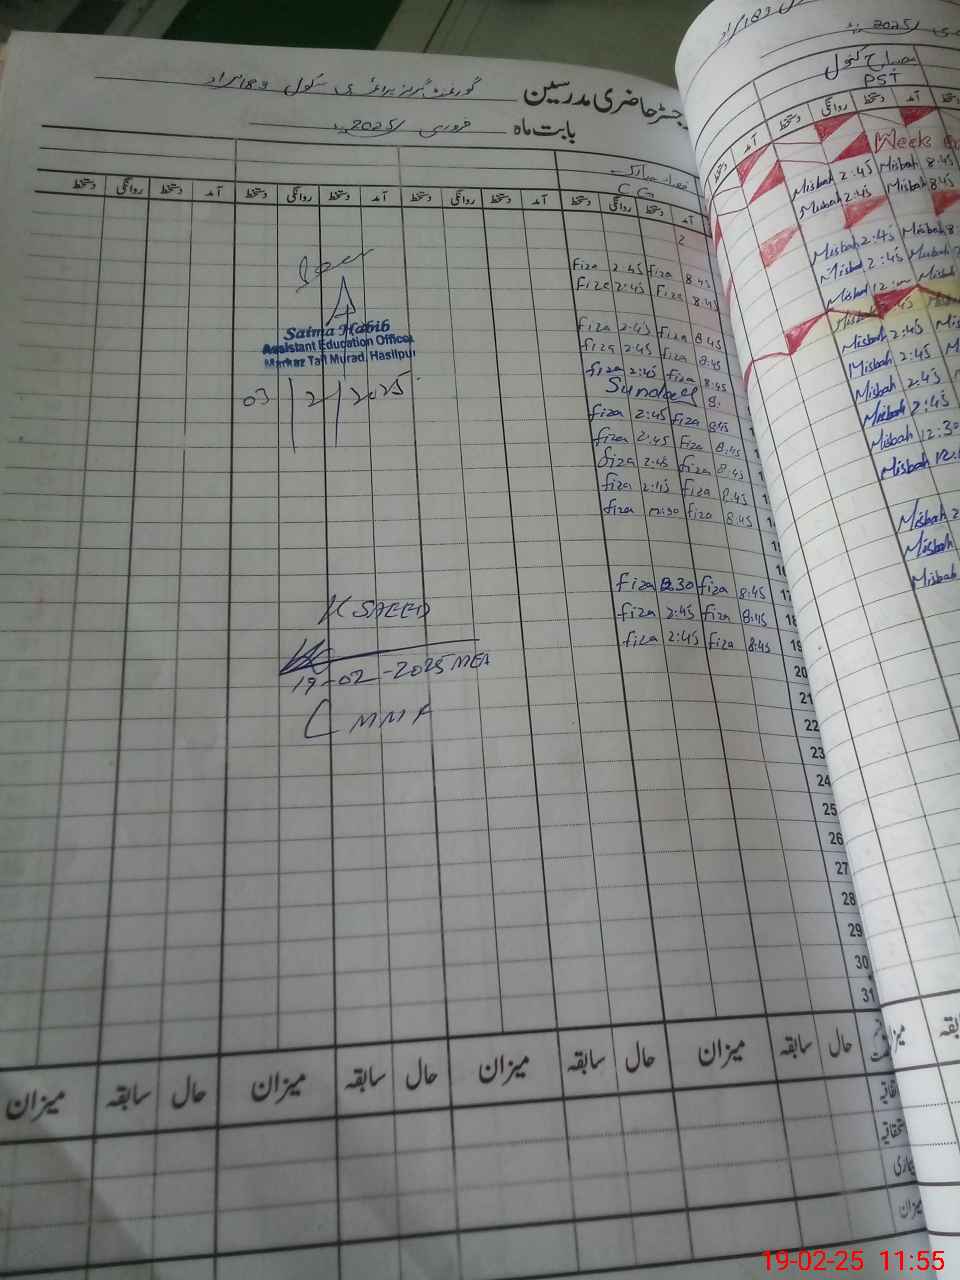 رجسٹر حاضری مدرسین گورنمنٹ گرلز پرائمری سکول 183/مراد
بابت ماہ فروری 2025ء
C.G
آمد دستخط روانگی دستخط آمد دستخط روانگی دستخط آمد دستخط روانگی دستخط آمد دستخط
2
Fiza 2:45 Fiza 8:45
Fiza 2:45 Fiza 8:45
Fiza 2:45 Fiza 8:45
Fiza 2:45 Fiza 8:45
Fiza 2:45 Fiza 8:45
Sunday
Fiza 2:45 Fiza 8:45
Fiza 2:45 Fiza 8:45
Fiza 2:45 Fiza 8:45
Fiza 2:45 Fiza 8:45
Fiza 12:30 Fiza 8:45
Fiza 2:30 Fiza 8:45 17
Fiza 2:45 Fiza 8:45 18
Fiza 2:45 Fiza 8:45 19
20
21
22
23
24
25
26
27
28
29
30
31
Saima Habib
Assistant Education Officer
Markaz Tail Murad, Hasilpur
03/2/2025
K SAEED
19-02-2025 MEA
حال سابقہ میزان حال سابقہ میزان حال سابقہ میزان حال سابقہ میزان
اتفاقیہ
استحقاقیہ
بیماری
میزان
2025ء
مصباح کنول
PST
آمد دستخط روانگی دستخط آمد دستخط
Week
Misbah 2:45 Misbah 8:45
Misbah 2:45 Misbah 8:45
Misbah 2:45 Misbah 8:
Misbah 2:45 Misbah
Misbah 12: Misbah
Misbah 2:45
Misbah 2:45
Misbah 2:45
Misbah 2:45
Misbah 12:30
Misbah 12:
Misbah 2
Misbah
Misbah
19-02-25 11:55